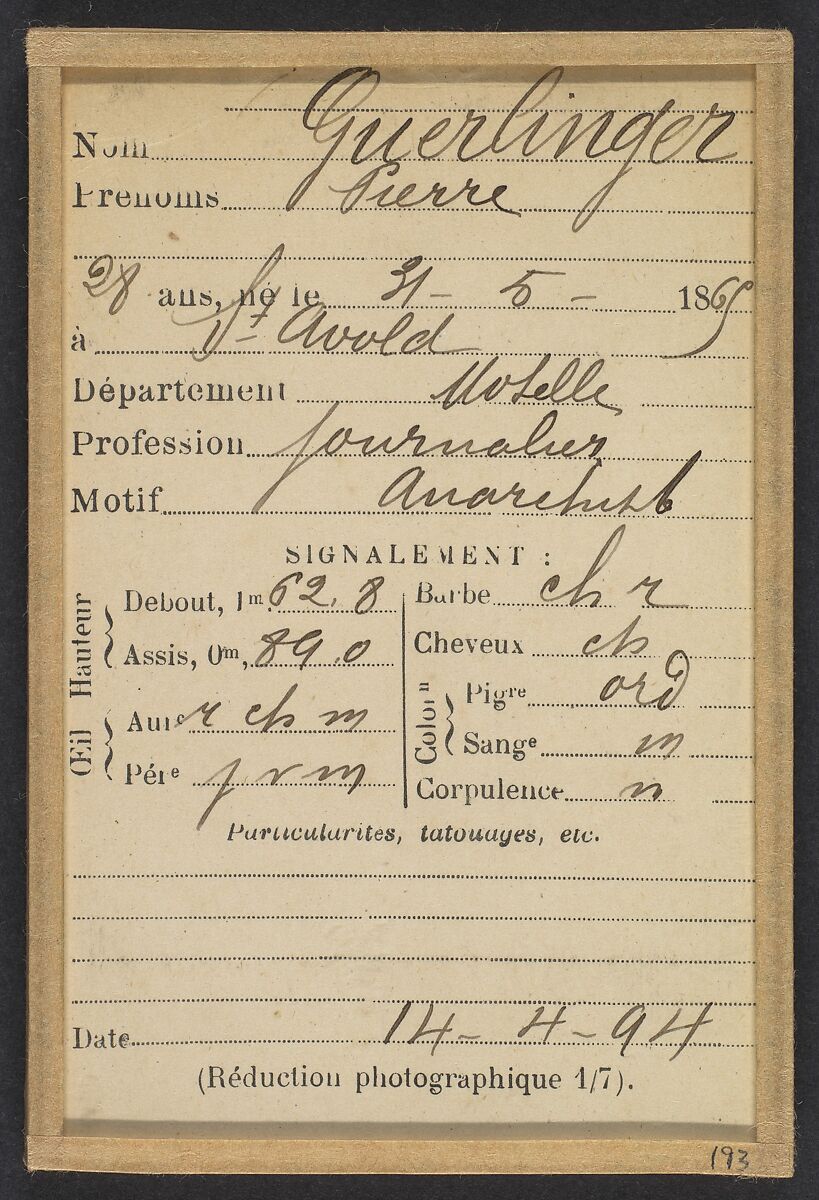 Nom Guerlinger
Prénoms Pierre
28 ans, né le 31 - 5 - 1865
à St Avold
Département Moselle
Profession journalier
Motif Anarchiste
SIGNALEMENT :
Hauteur
Debout, 1m 62.8
Assis, 0m, 89.0
Œil
Aure r ch m
Pére j v m
Barbe ch r
Cheveux ch
Colorn
Pigre ord
Sange m
Corpulence n
Particularités, tatouages, etc.
Date 14 - 4 - 94
(Réduction photographique 1/7).
193